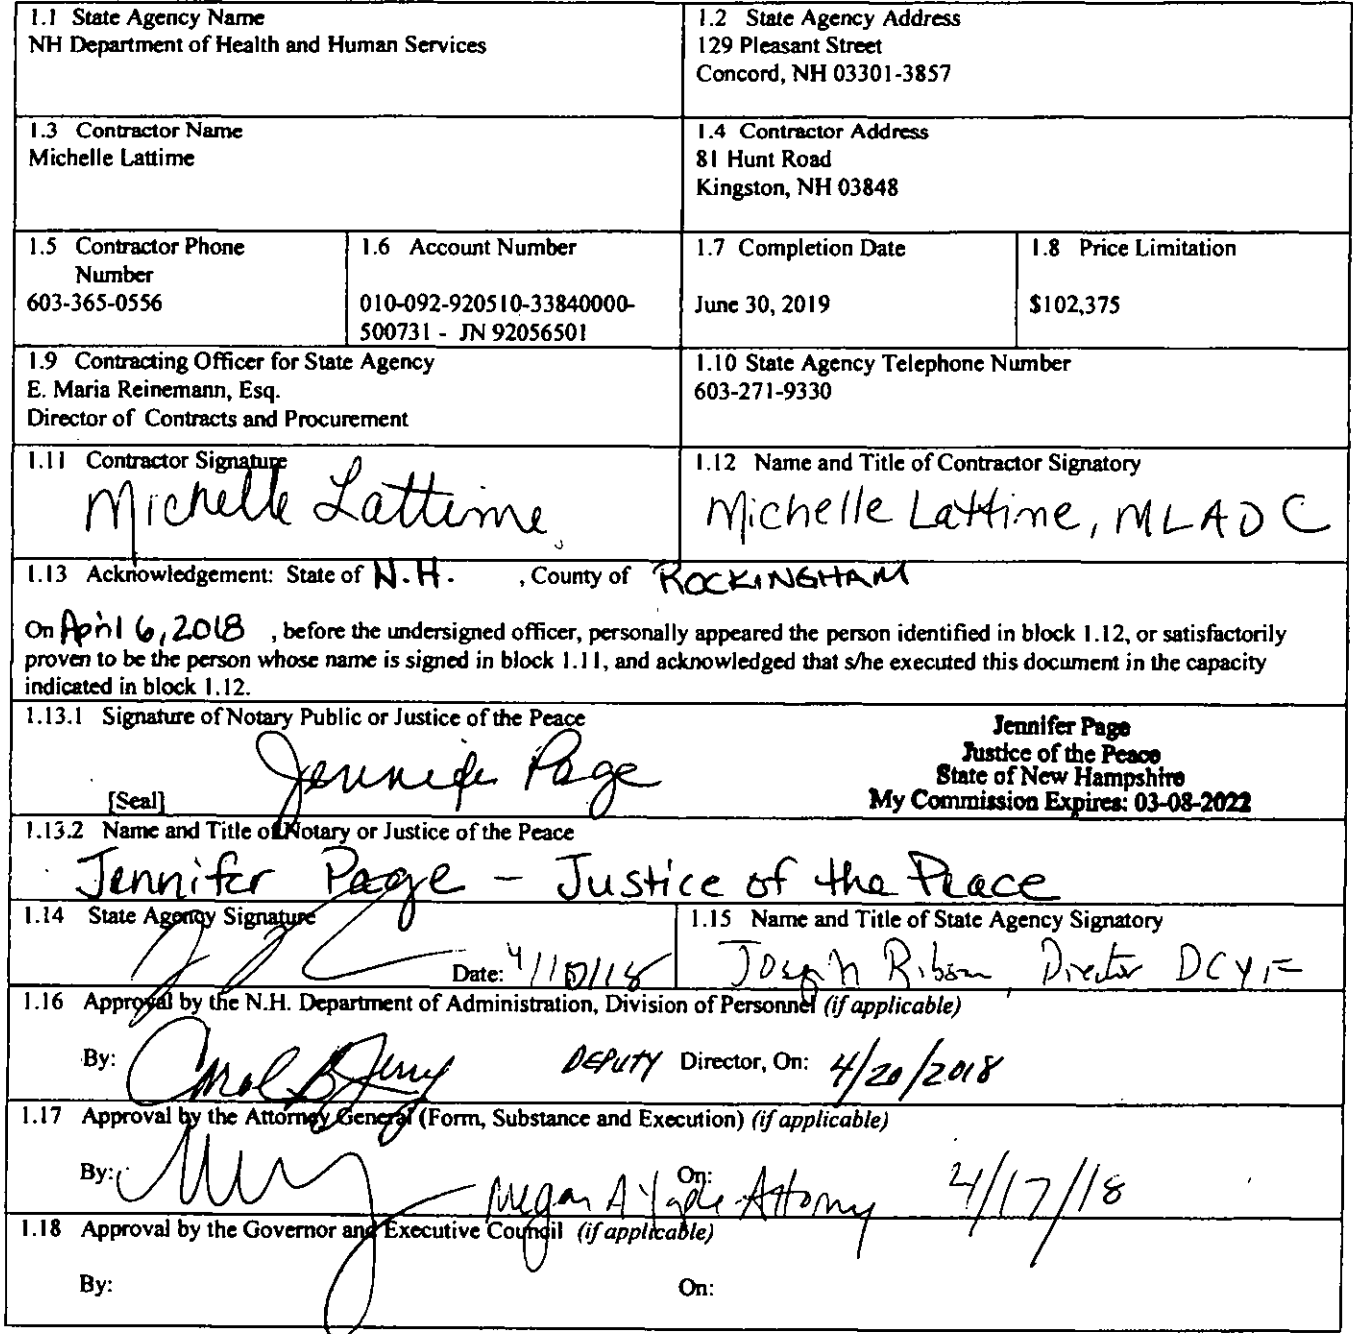 1.1 State Agency Name
NH Department of Health and Human Services
1.2 State Agency Address
129 Pleasant Street
Concord, NH 03301-3857
1.3 Contractor Name
Michelle Lattime
1.4 Contractor Address
81 Hunt Road
Kingston, NH 03848
1.5 Contractor Phone
Number
603-365-0556
1.6 Account Number
010-092-920510-33840000-
500731 - JN 92056501
1.7 Completion Date
June 30, 2019
1.8 Price Limitation
$102,375
1.9 Contracting Officer for State Agency
E. Maria Reinemann, Esq.
Director of Contracts and Procurement
1.10 State Agency Telephone Number
603-271-9330
1.11 Contractor Signature
Michelle Lattime
1.12 Name and Title of Contractor Signatory
Michelle Lattime, MLADC
1.13 Acknowledgement: State of N.H. , County of ROCKINGHAM
On April 6, 2018 , before the undersigned officer, personally appeared the person identified in block 1.12, or satisfactorily
proven to be the person whose name is signed in block 1.11, and acknowledged that s/he executed this document in the capacity
indicated in block 1.12.
1.13.1 Signature of Notary Public or Justice of the Peace
Jennifer Page
[Seal]
Jennifer Page
Justice of the Peace
State of New Hampshire
My Commission Expires: 03-08-2022
1.13.2 Name and Title of Notary or Justice of the Peace
Jennifer Page - Justice of the Peace
1.14 State Agency Signature
Date: 4/10/18
1.15 Name and Title of State Agency Signatory
Joseph Director DCYF
1.16 Approval by the N.H. Department of Administration, Division of Personnel (if applicable)
By: Carol B DEPUTY Director, On: 4/20/2018
1.17 Approval by the Attorney General (Form, Substance and Execution) (if applicable)
By: On: Megan A Attorney 4/17/18
1.18 Approval by the Governor and Executive Council (if applicable)
By: On: